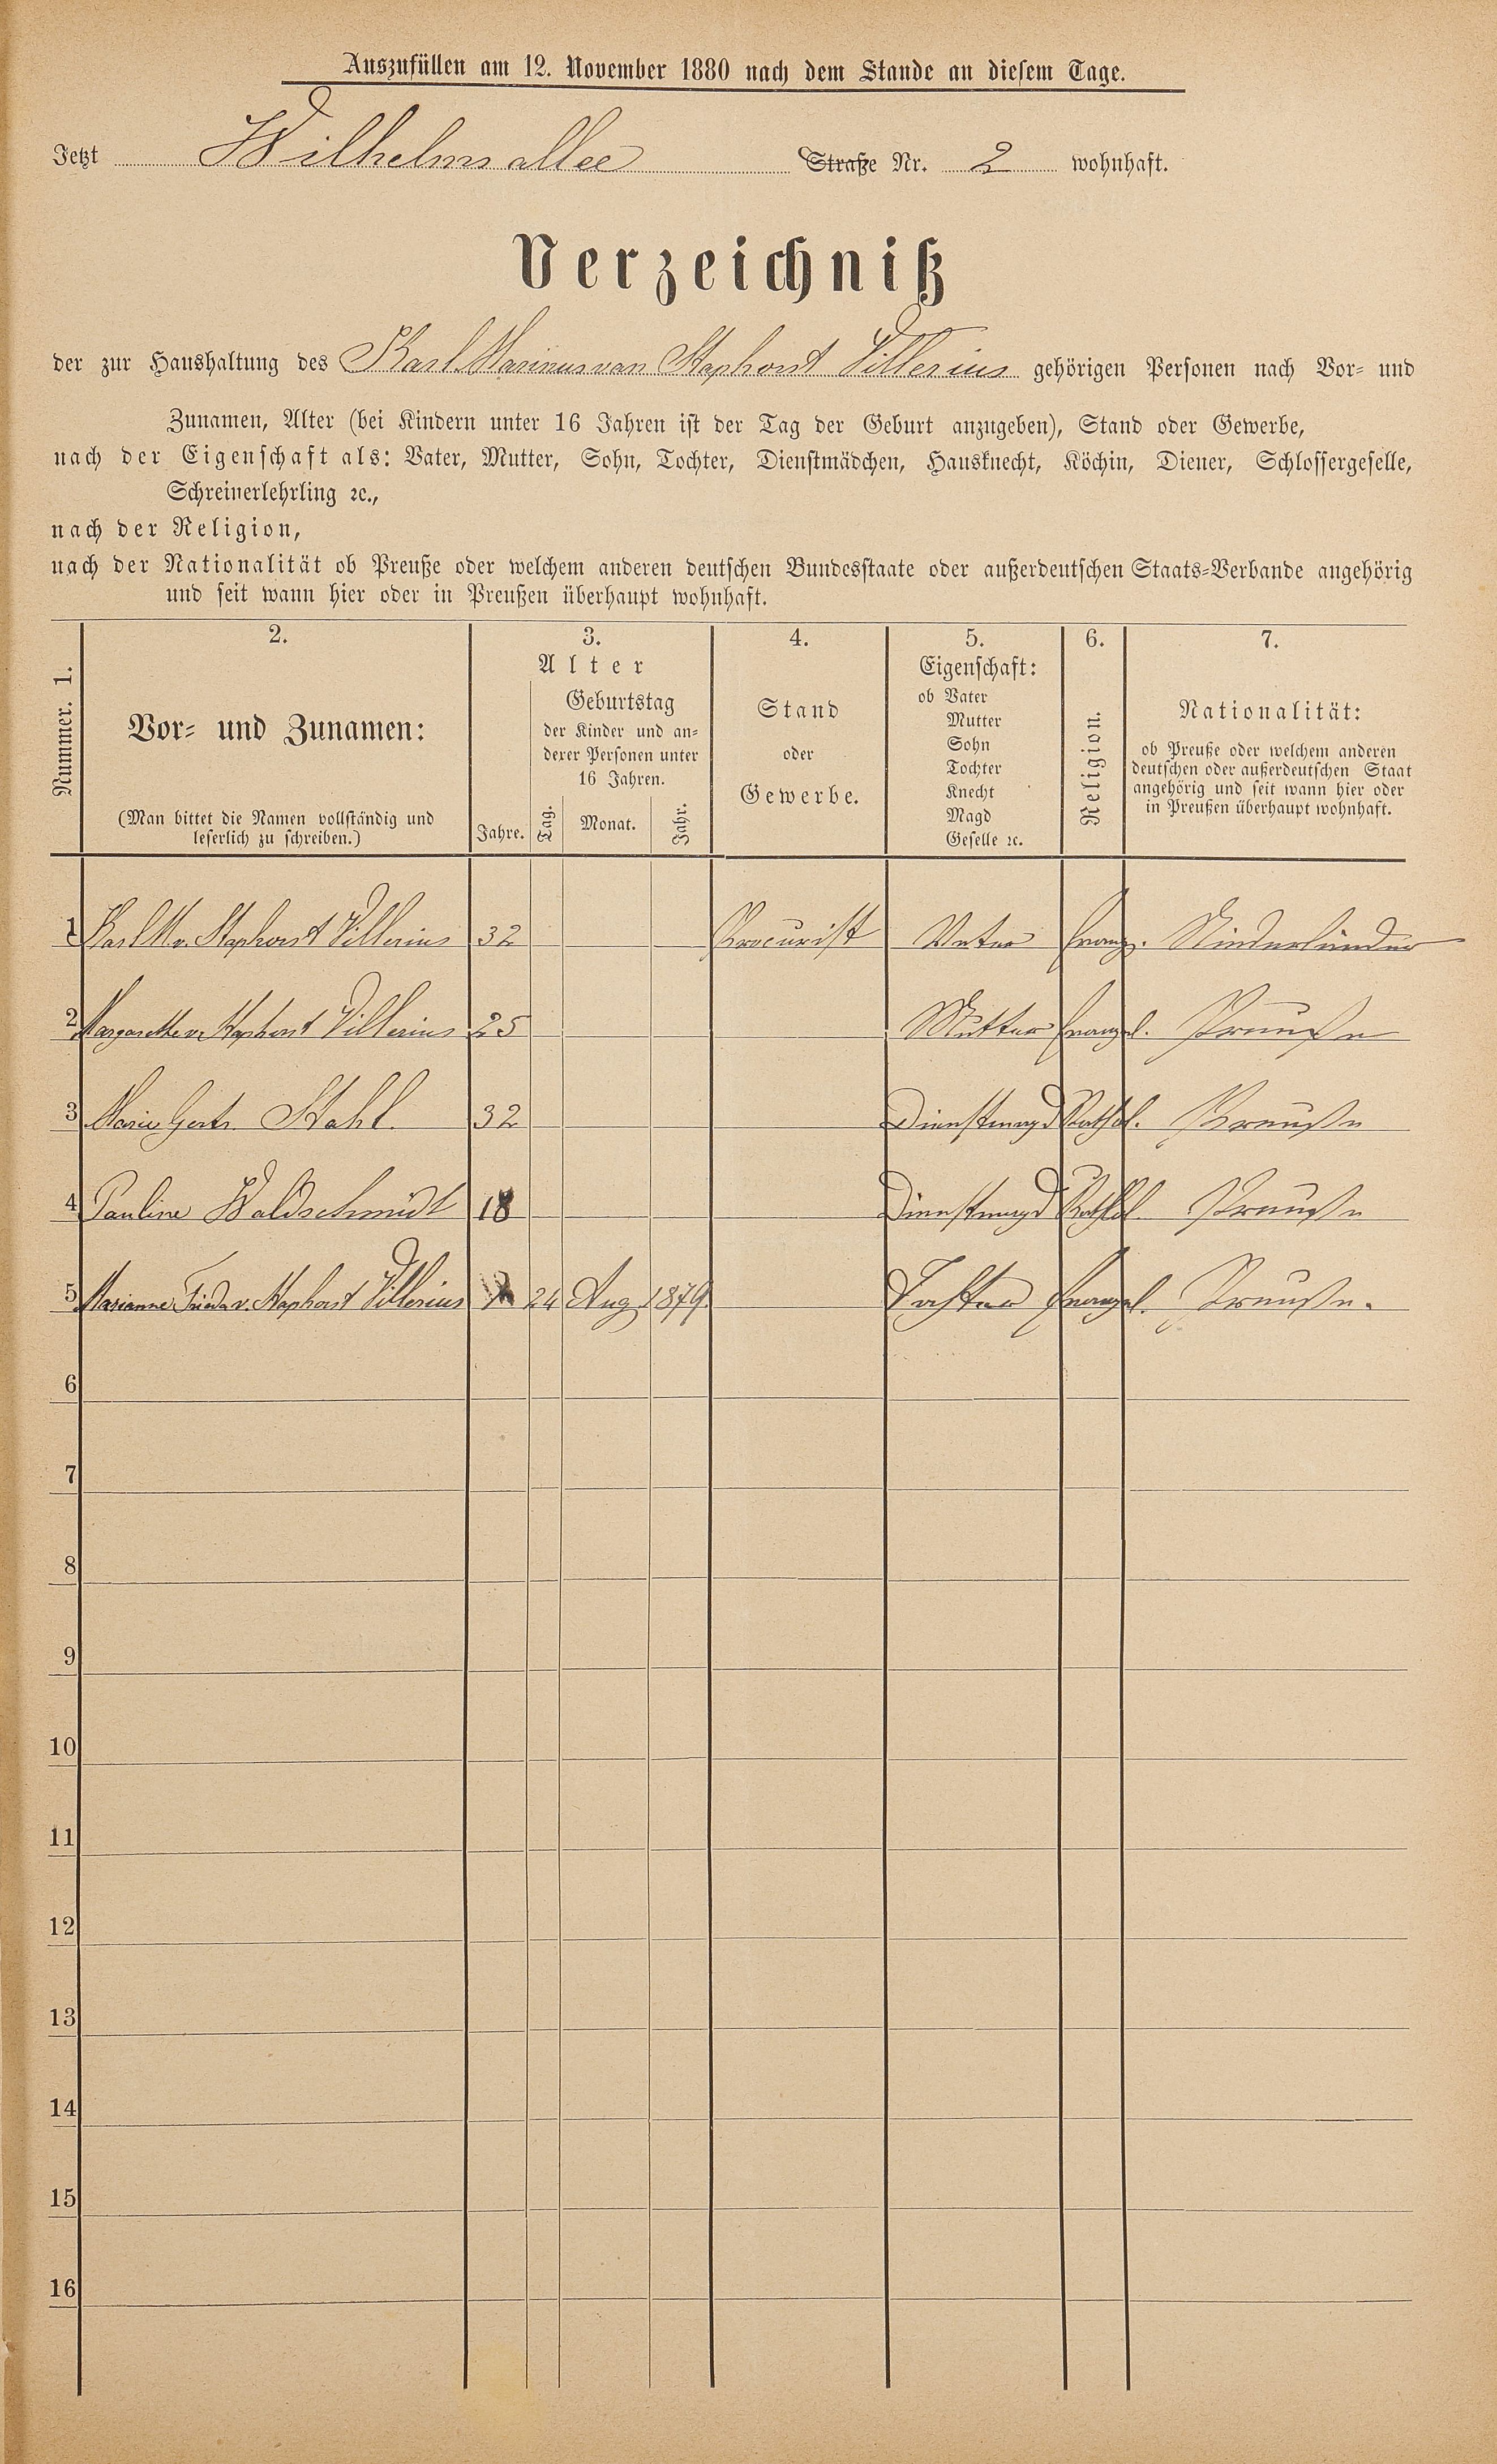 Auszufüllen am 12. November 1880 nach dem Stande an diesem Tage.
Jetzt Wilhelms allee Straße Nr. 2 wohnhaft.
Verzeichniß
der zur Haushaltung des Karl Marinus van Staphorst Villerius gehörigen Personen nach Vor- und
Zunamen, Alter (bei Kindern unter 16 Jahren ist der Tag der Geburt anzugeben), Stand oder Gewerbe,
nach der Eigenschaft als: Vater, Mutter, Sohn, Tochter, Dienstmädchen, Hausknecht, Köchin, Diener, Schlossergeselle,
Schreinerlehrling ꝛc.,
nach der Religion,
nach der Nationalität ob Preuße oder welchem anderen deutschen Bundesstaate oder außerdeutschen Staats-Verbande angehörig
und seit wann hier oder in Preußen überhaupt wohnhaft.
Nummer. 1.
2.
Vor- und Zunamen:
(Man bittet die Namen vollständig und
leserlich zu schreiben.)
3.
Alter
Jahre.
Geburtstag
der Kinder und an-
derer Personen unter
16 Jahren.
Tag. Monat. Jahr.
4.
Stand
oder
Gewerbe.
5.
Eigenschaft:
ob Vater
Mutter
Sohn
Tochter
Knecht
Magd
Geselle ꝛc.
6.
Religion.
7.
Nationalität:
ob Preuße oder welchem anderen
deutschen oder außerdeutschen Staat
angehörig und seit wann hier oder
in Preußen überhaupt wohnhaft.
1 Karl M v. Staphorst Villerius 32 Procurist Vater Evang. Niederländer
2 Margarethe v. Staphorst Villerius 25 Mutter Evangel. Preuße
3 Marie Gertr. Stahl. 32 Dienstmagd Kathol. Preuße
4 Pauline Waldschmidt 18 Dienstmagd Kathol. Preuße
5 Marianne Frieda v. Staphorst Villerius 24 Aug 1879. Tochter Evangel. Preuße.
6
7
8
9
10
11
12
13
14
15
16